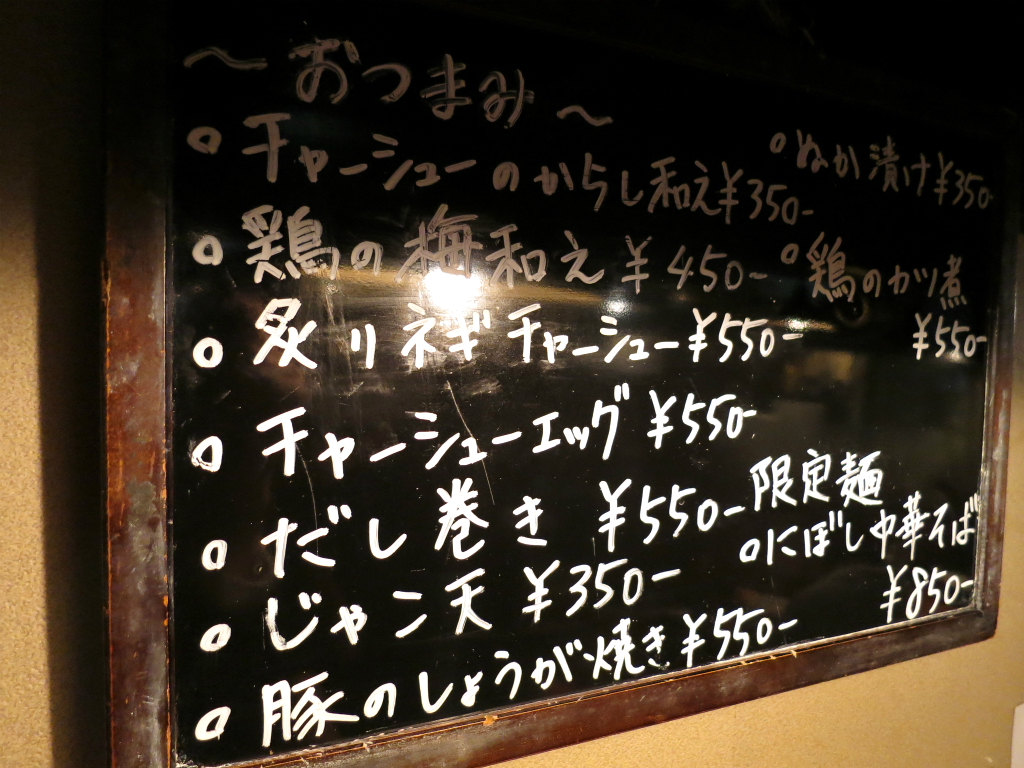 ～おつまみ～
○チャーシューのからし和え¥350-
○鶏の梅和え ¥450-
○炙りネギチャーシュー¥550-
○チャーシューエッグ ¥550-
○だし巻き ¥550-
○じゃこ天 ¥350-
○豚のしょうが焼き¥550-
○ぬか漬け¥350-
○鶏のガツ煮
¥550-
限定麺
○にぼし中華そば
¥850-